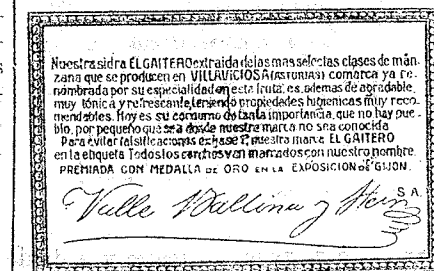 Nuestra sidra EL GAITERO extraida de las mas selectas clases de man-
zana que se producen en VILLAVICIOSA (ASTURIAS) comarca ya re-
nombrada por su especialidad en esta fruta, es, ademas de agradable,
muy tónica y refrescante, teniendo propiedades higienicas muy reco-
mendables. Hoy es su consumo de tanta importancia, que no hay pue-
blo, por pequeño que sea donde nuestra marca no sea conocida
Para evitar falsificaciones exijase nuestra marca EL GAITERO
en la etiqueta Todos los corchos van marcados con nuestro nombre.
PREMIADA CON MEDALLA DE ORO EN LA EXPOSICION DE GIJON.
Valle Ballina y
S A